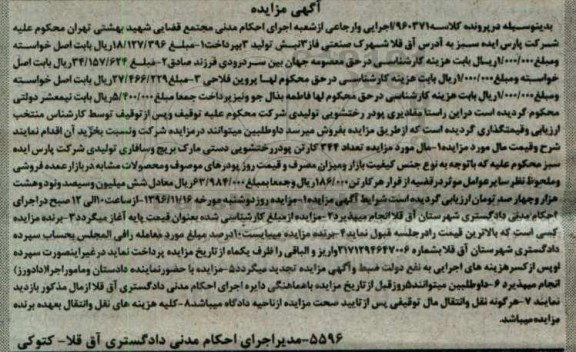 آگهی مزایده
بدینوسیله در پرونده کلاسه ۹۶۰۳۷۱/اجرایی وارجاعی ازشعبه اجرای احکام مدنی مجتمع قضایی شهید بهشتی تهران محکوم علیه
شرکت پارس ایده سبز به آدرس آق قلا شهرک صنعتی فاز۳نبش تولید ۳بپرداخت۱-مبلغ ۱۸/۱۲۷/۳۹۶ریال بابت اصل خواسته
ومبلغ۱/۰۰۰/۰۰۰ریسال بابت هزینه کارشناسی درحق معصومه جهان بین سردرودی فرزند صادق۲-مبلغ ۳۴/۱۵۷/۶۲۴ریال بابت اصل
خواسته ومبلغ۱/۰۰۰/۰۰۰ریال بابت هزینه کارشناسی درحق محکوم لها پروین فلاحی ۳-مبلغ۲۷/۴۶۶/۲۲۹ریال بابت اصل خواسته
ومبلغ۱/۰۰۰/۰۰۰ریال بابت هزینه کارشناسی درحق محکوم لها فاطمه بذال جو ونیزپرداخت جمعا مبلغ۵/۴۰۰/۰۰۰ریال بابت نیمعشر دولتی
محکوم گردیده است دراین راستا مقادیری پودر رختشویی تولیدی شرکت محکوم علیه توقیف وپس ازتوقیف توسط کارشناس منتخب
ارزیابی وقیمتگذاری گردیده است که ازطریق مزایده بفروش میرسد داوطلبین میتوانند درمزایده شرکت ونسبت بخرید آن اقدام نمایند
شرح وقیمت مال مورد مزایده۱-مال مورد مزایده تعداد ۳۴۴ کارتن پودررختشویی دستی مارک بریج وسافاری تولیدی شرکت پارس ایده
سبز محکوم علیه که باتوجه به نوع جنس کیفیت بازار ومیزان مصرف و قیمت روز پودرهای موصوف ومحصولات مشابه دربازار عمده فروشی
وملحوظ نظر سایر عوامل موثر درقضیه از قرار هر کارتن ۱۸۶/۰۰۰ریال وجمعا بمبلغ۶۳/۹۸۴/۰۰۰ریال معادل شش میلیون وسیصد ونود وهشت
هزار وچهار صد تومان ارزیابی گردیده است شرایط آگهی مزایده۱-مزایده روز دوشنبه مورخه ۱۳۹۶/۱۱/۱۶ ازساعت۱۰الی ۱۲ صبح دراجرای
احکام مدنی دادگستری شهرستان آق قلاانجام میپذیرد۲-مزایده ازمبلغ کارشناسی شده بعنوان قیمت پایه آغاز میگردد۳-برنده مزایده
کسی است که بالاترین قیمت رادرجلسه قبول نماید۴-برنده مزایده میبایست۱۰درصد مبلغ مورد معامله رافی المجلس بحساب سپرده
دادگستری شهرستان آق قلابشماره ۲۱۷۱۲۹۴۶۴۷۰۰۶واریز و الباقی را ظرف یکماه از تاریخ مزایده پرداخت نماید درغیراینصورت سپرده
اوپس ازکسرهزینه های اجرایی به نفع دولت ضبط وآگهی مزایده تجدید میگردد۵-مزایده با حضورنماینده دادستان وماموراجرا(دادورز)
انجام میپذیرد ۶-داوطلبین میتوانند۵روزقبل ازتاریخ مزایده باهماهنگی دایره اجرای احکام مدنی دادگستری آق قلاازمال مذکور بازدید
نمایند ۷-هرگونه نقل وانتقال مال توقیفی پس ازتایید صحت مزایده ازناحیه دادگاه میباشد۸-کلیه هزینه های نقل وانتقال بعهده برنده
مزایده میباشد.
۵۵۹۶-مدیراجرای احکام مدنی دادگستری آق قلا- کتوکی